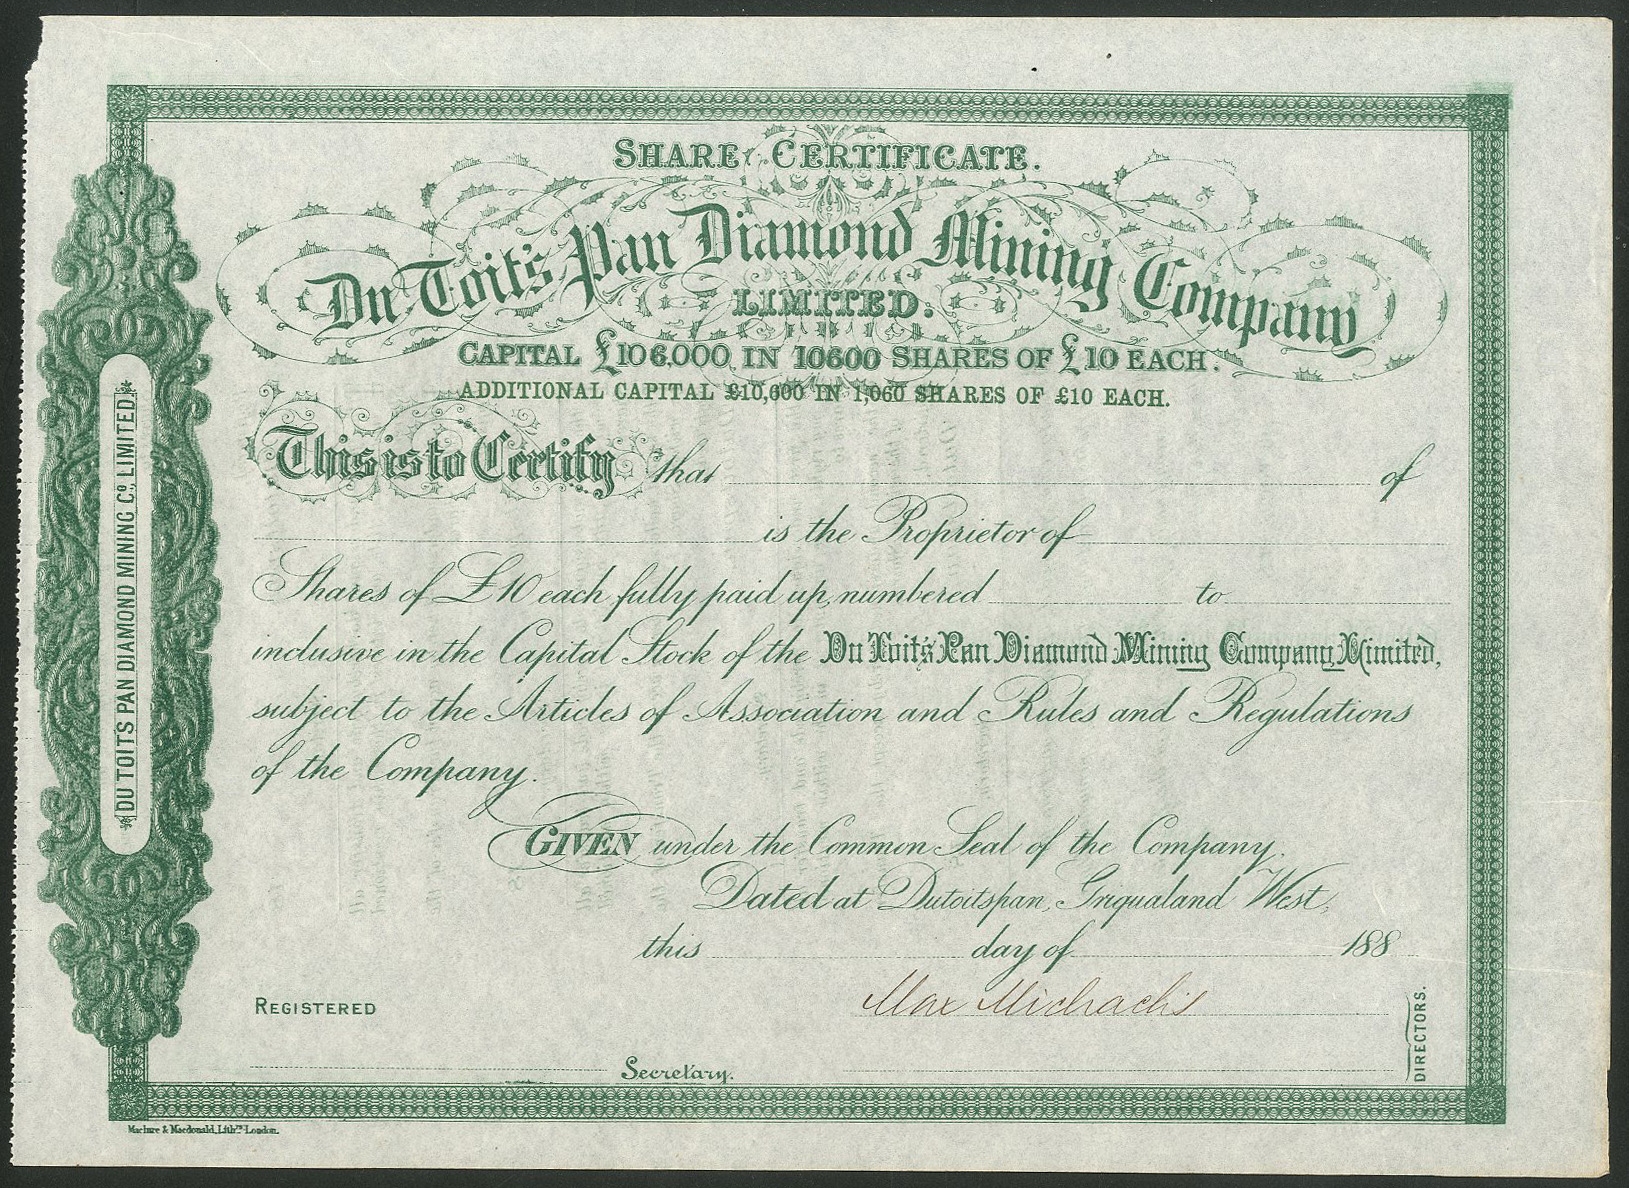 SHARE CERTIFICATE.
Du Toit's Pan Diamond Mining Company
LIMITED.
CAPITAL £106,000, IN 10600 SHARES OF £10 EACH.
ADDITIONAL CAPITAL £10,600 IN 1,060 SHARES OF £10 EACH.
This is to Certify that of
is the Proprietor of
Shares of £10 each fully paid up, numbered to
inclusive in the Capital Stock of the Du Toit's Pan Diamond Mining Company Limited,
subject to the Articles of Association and Rules and Regulations
of the Company.
GIVEN under the Common Seal of the Company.
Dated at Dutoitspan, Griqualand West,
this day of 188
REGISTERED
Max Michaelis
DIRECTORS.
Secretary.
Maclure & Macdonald, Lithrs. London.
DU TOITS PAN DIAMOND MINING Co., LIMITED.